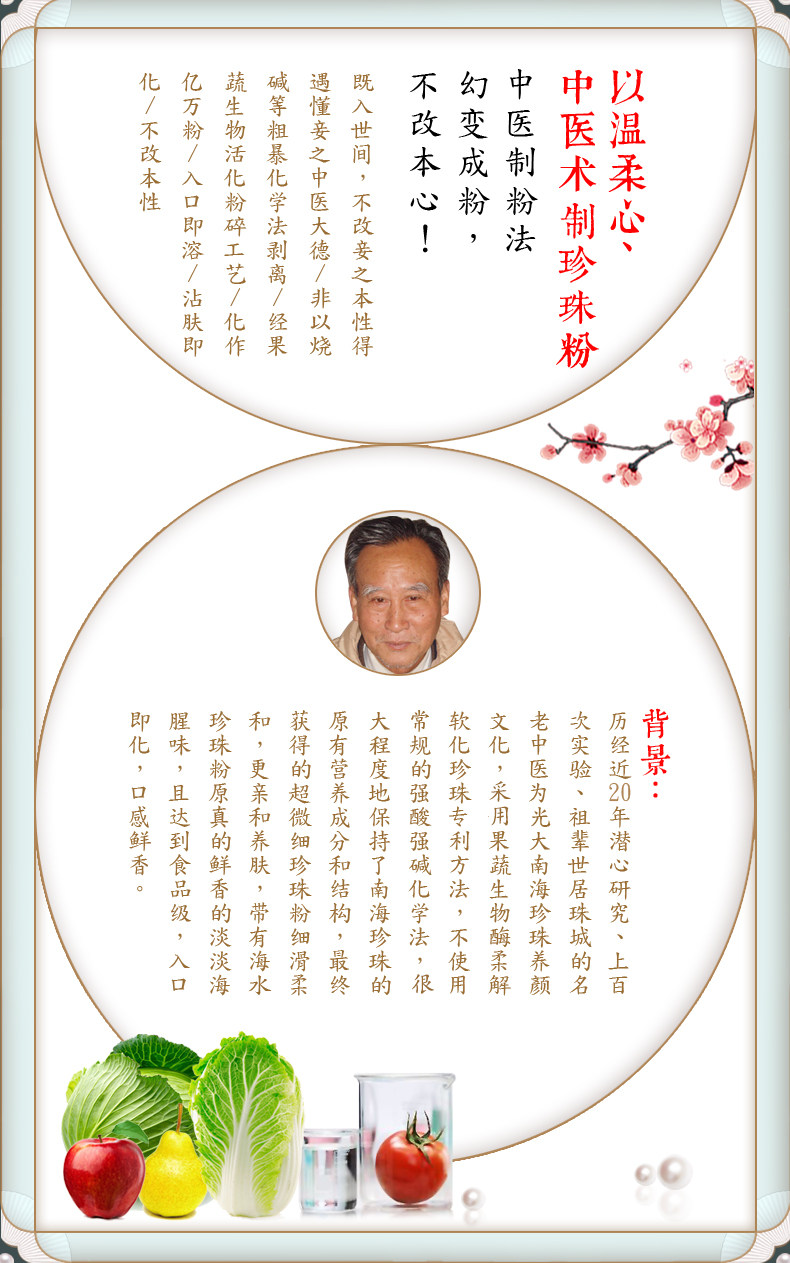 以温柔心、
中医术制珍珠粉
中医制粉法
幻变成粉，
不改本心！
既入世间，不改妾之本性得
遇懂妾之中医大德/非以烧
碱等粗暴化学法剥离/经果
蔬生物活化粉碎工艺/化作
亿万粉/入口即溶/沾肤即
化/不改本性
背景：
历经近20年潜心研究、上百
次实验、祖辈世居珠城的名
老中医为光大南海珍珠养颜
文化，采用果蔬生物酶柔解
软化珍珠专利方法，不使用
常规的强酸强碱化学法，很
大程度地保持了南海珍珠的
原有营养成分和结构，最终
获得的超微细珍珠粉细滑柔
和，更亲和养肤，带有海水
珍珠粉原真的鲜香的淡淡海
腥味，且达到食品级，入口
即化，口感鲜香。